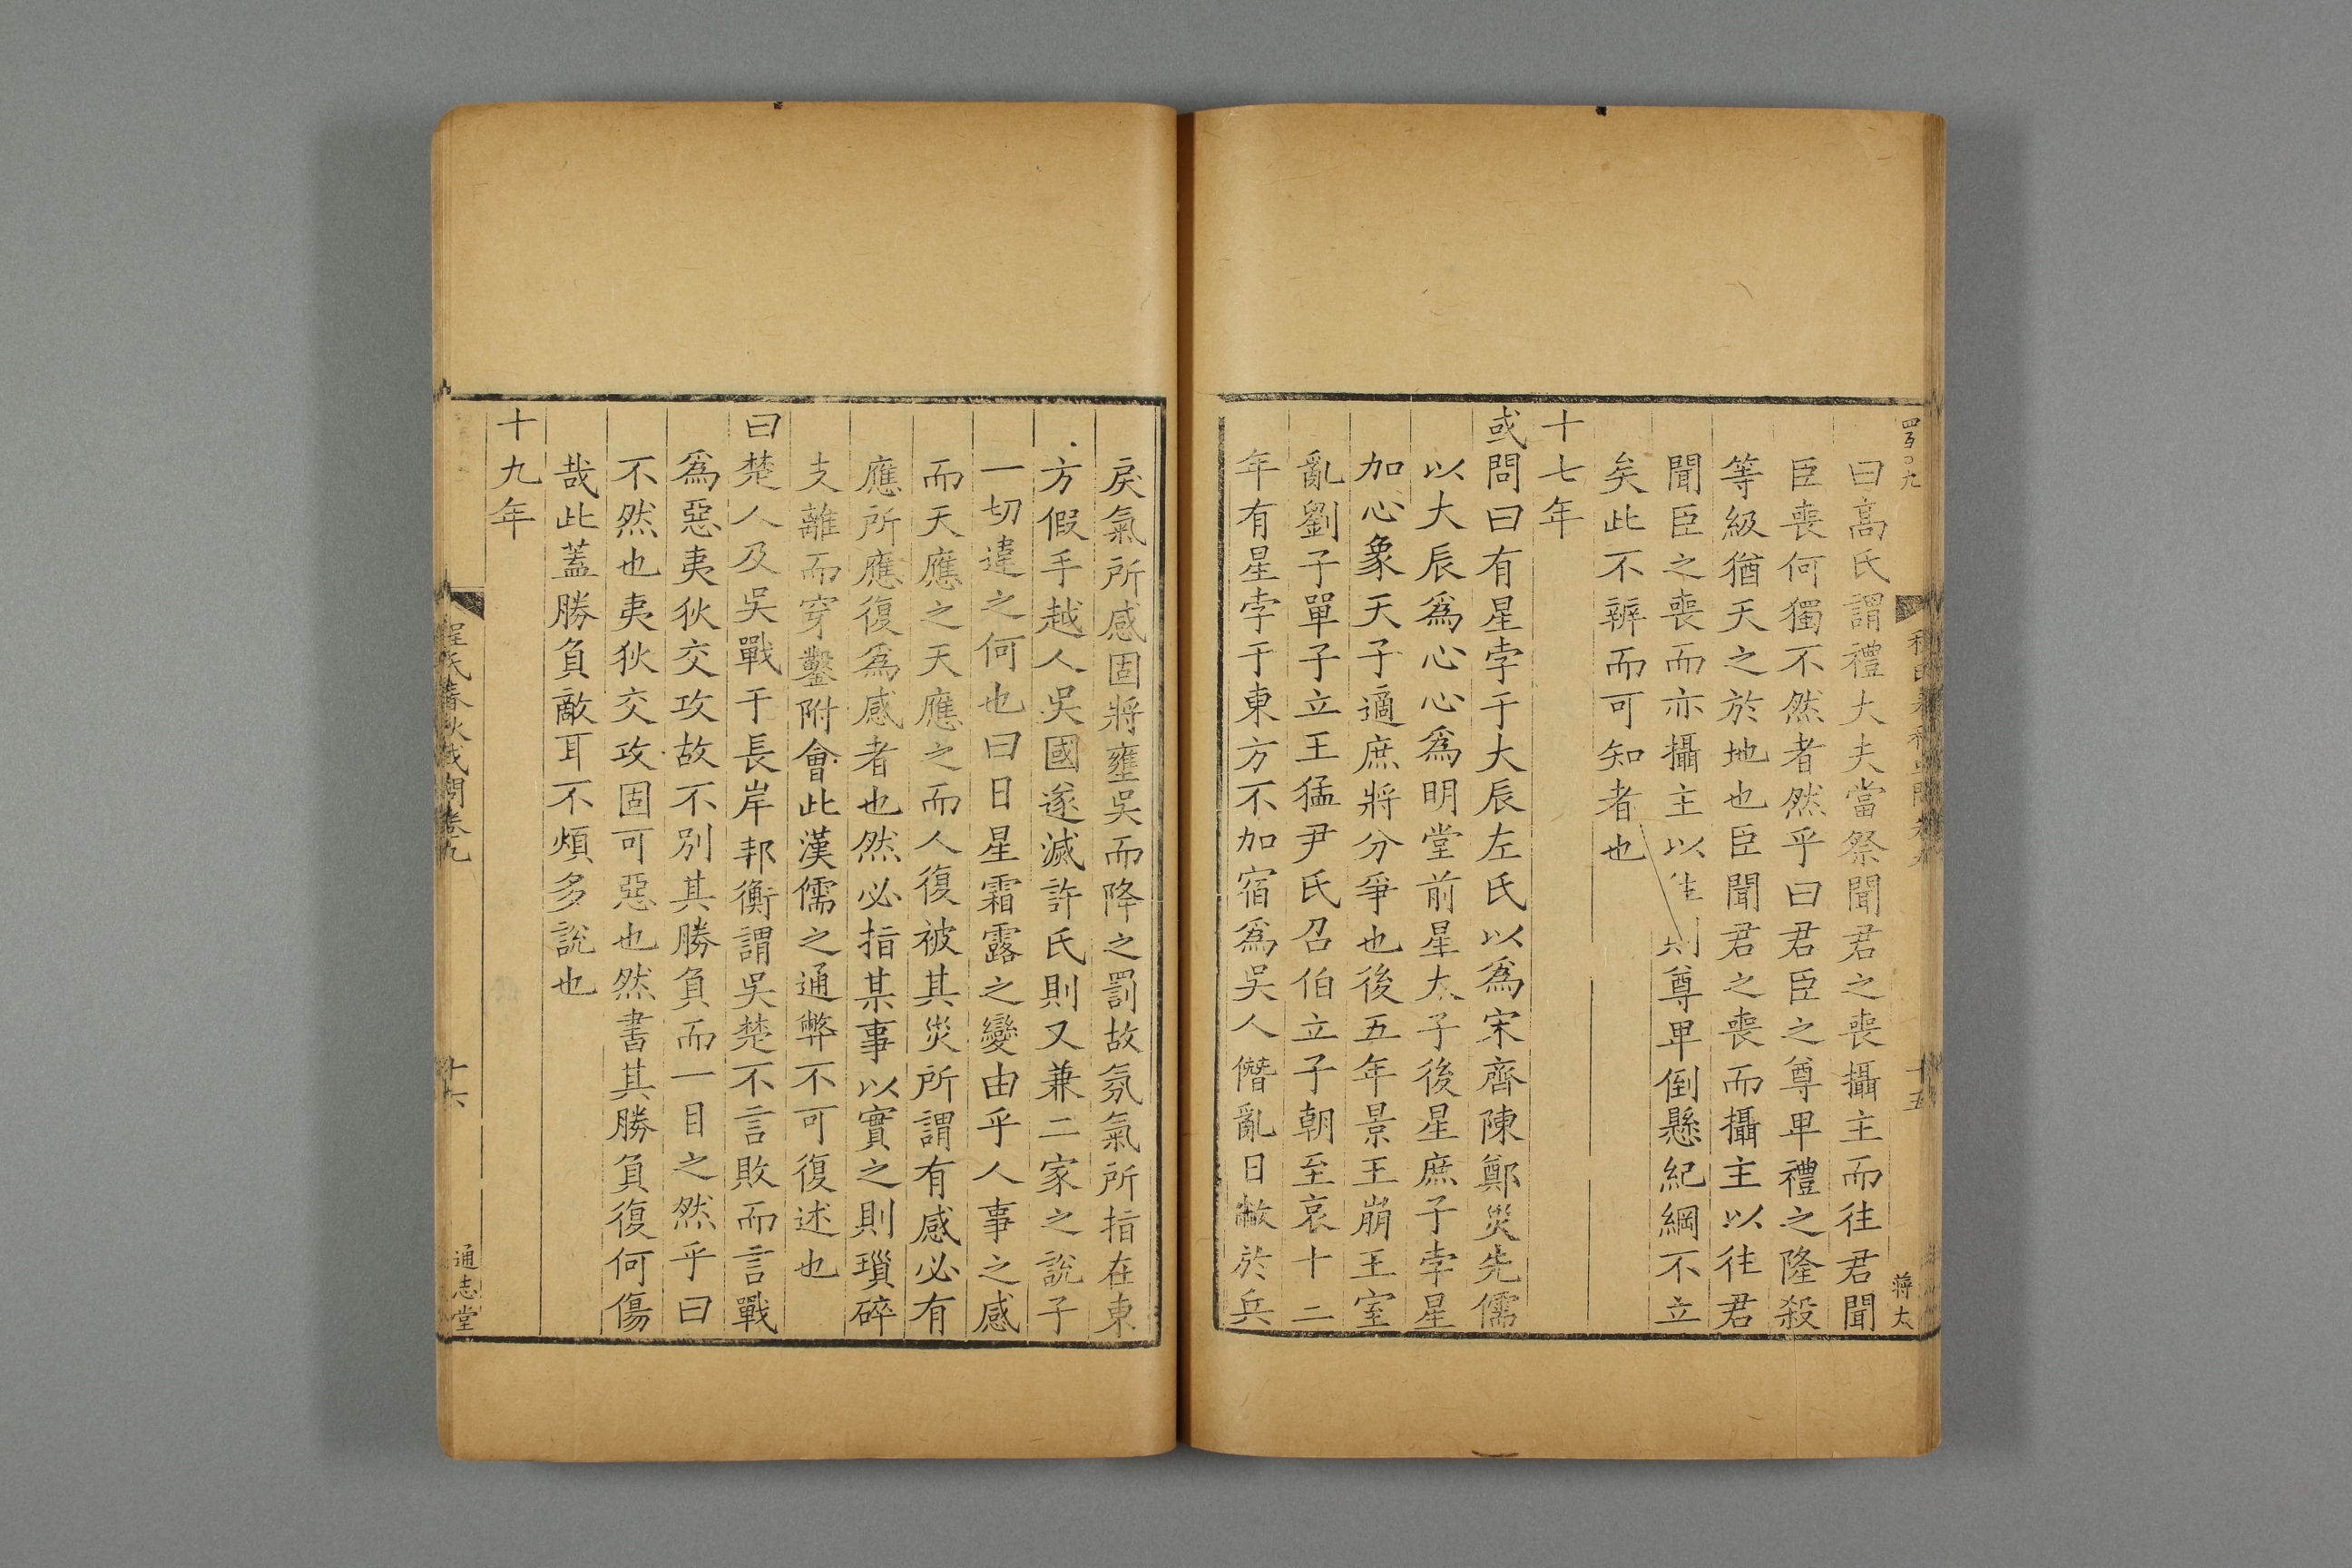 曰高氏謂禮大夫當祭聞君之喪攝主而往君聞
臣喪何獨不然者然乎曰君臣之尊卑禮之隆殺
等級猶天之於地也臣聞君之喪而攝主以往君
聞臣之喪而亦攝主以往則尊卑倒懸紀綱不立
矣此不辨而可知者也
十七年
或問曰有星孛于大辰左氏以爲宋齊陳鄭災先儒
以大辰爲心心爲明堂前星太子後星庶子孛星
加心象天子適庶將分爭也後五年景王崩王室
亂劉子單子立王猛尹氏召伯立子朝至哀十二
年有星孛于東方不加宿爲吳人僭亂日敝於兵
十五
蔣太
戾氣所感固將壅吳而降之罰故氛氣所指在東
方假手越人吳國遂滅許氏則又兼二家之說子
一切違之何也曰日星霜露之變由乎人事之感
而天應之天應之而人復被其災所謂有感必有
應所應復爲感者也然必指某事以實之則瑣碎
支離而穿鑿附會此漢儒之通弊不可復述也
曰楚人及吳戰于長岸邦衡謂吳楚不言敗而言戰
爲惡夷狄交攻故不別其勝負而一目之然乎曰
不然也夷狄交攻固可惡也然書其勝負復何傷
哉此蓋勝負敵耳不煩多說也
十九年
程氏春秋或問卷九
十六
通志堂